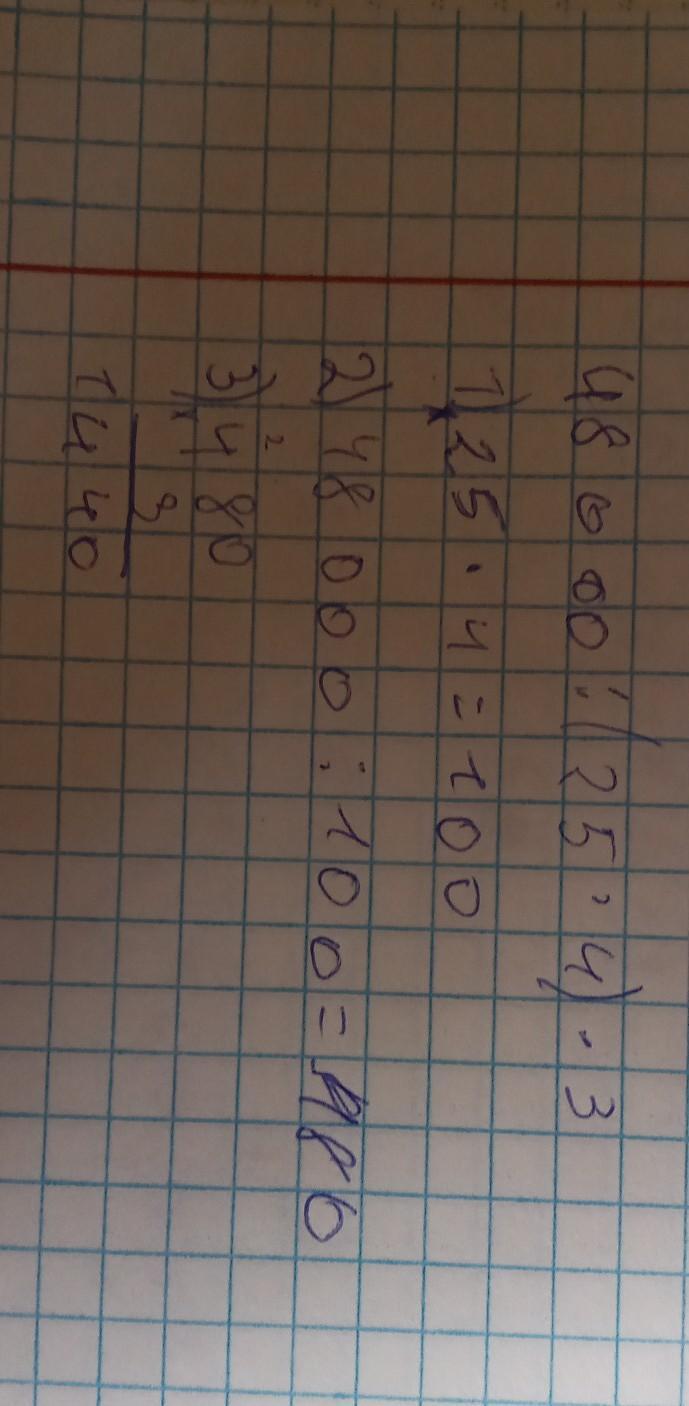 48000:(25·4)·3
1) 25·4=100
2) 48000:100=480
2
3) 480
×
3
1440